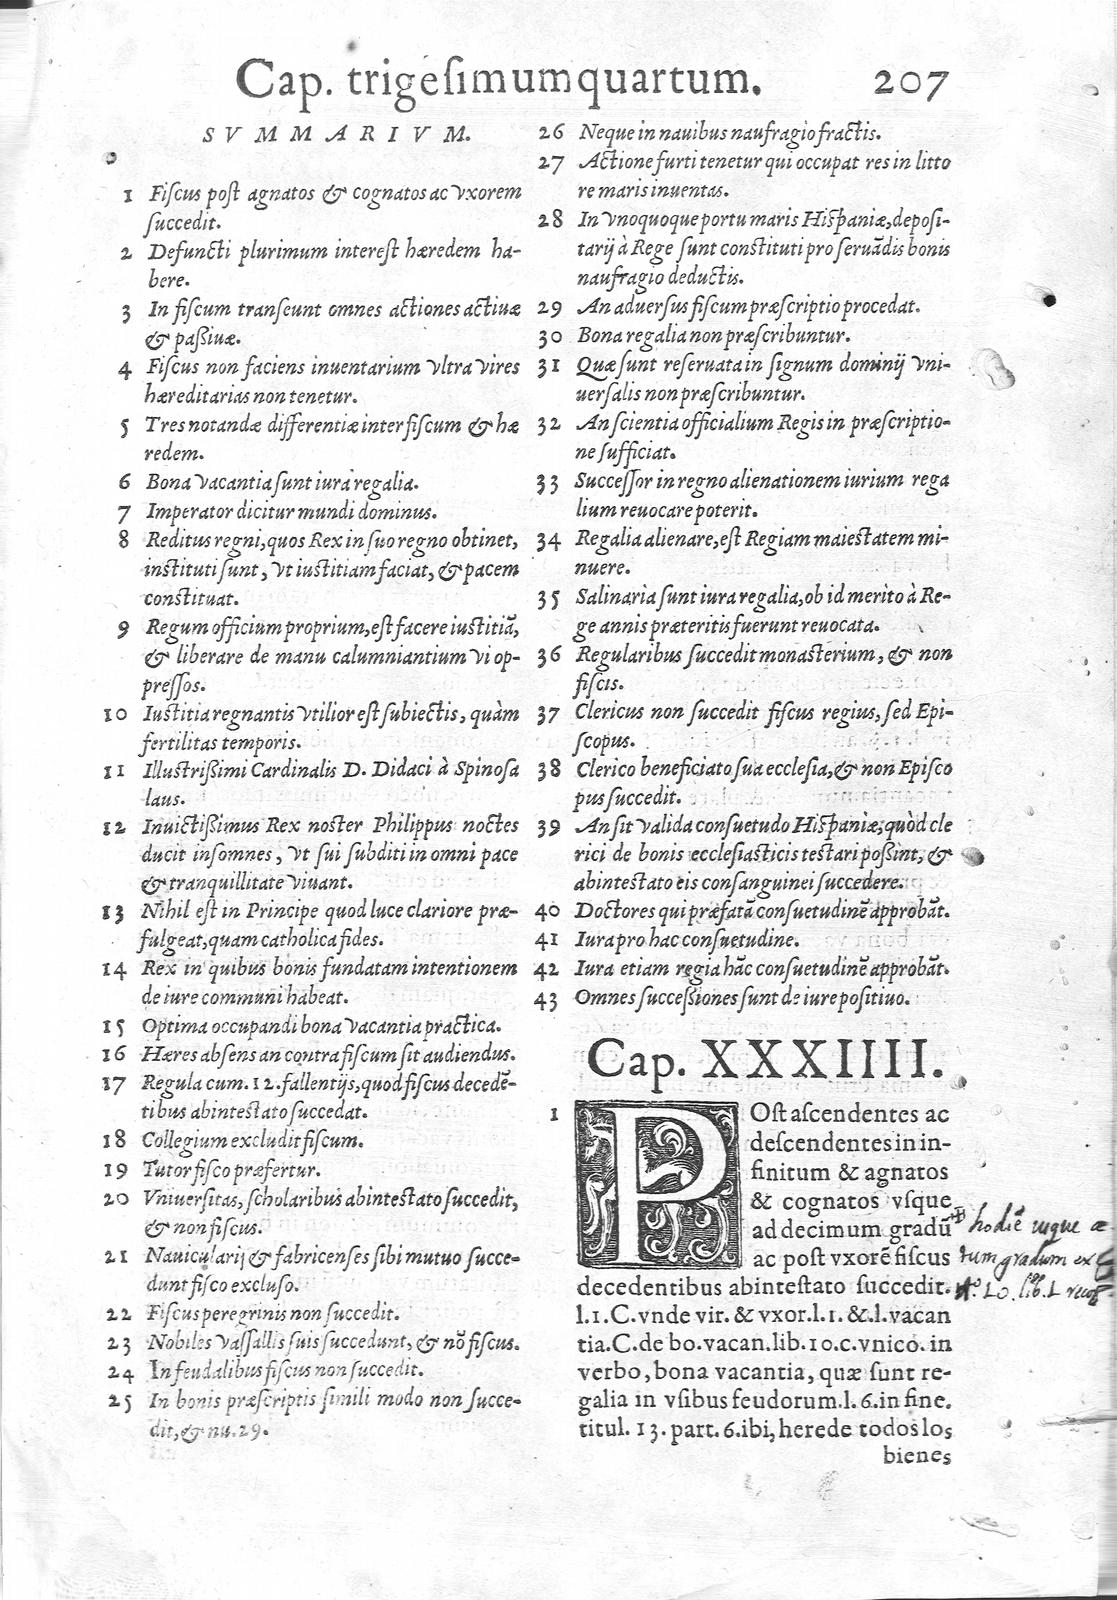 Cap. trigesimumquartum. 207
SVMMARIVM.
1 Fiscus post agnatos & cognatos ac vxorem
succedit.
2 Defuncti plurimum interest hæredem ha-
bere.
3 In fiscum transeunt omnes actiones actiuæ
& passiuæ.
4 Fiscus non faciens inuentarium vltra vires
hæreditarias non tenetur.
5 Tres notandæ differentiæ inter fiscum & hæ
redem.
6 Bona vacantia sunt iura regalia.
7 Imperator dicitur mundi dominus.
8 Reditus regni, quos Rex in suo regno obtinet,
instituti sunt, vt iustitiam faciat, & pacem
constituat.
9 Regum officium proprium, est facere iustitiã,
& liberare de manu calumniantium vi op-
pressos.
10 Iustitia regnantis vtilior est subiectis, quàm
fertilitas temporis.
11 Illustrissimi Cardinalis D. Didaci à Spinosa
laus.
12 Inuictissimus Rex noster Philippus noctes
ducit insomnes, vt sui subditi in omni pace
& tranquillitate viuant.
13 Nihil est in Principe quod luce clariore præ-
fulgeat, quam catholica fides.
14 Rex in quibus bonis fundatam intentionem
de iure communi habeat.
15 Optima occupandi bona vacantia practica.
16 Hæres absens an contra fiscum sit audiendus.
17 Regula cum. 12. fallentijs, quod fiscus decedẽ-
tibus abintestato succedat.
18 Collegium excludit fiscum.
19 Tutor fisco præfertur.
20 Vniuersitas, scholaribus abintestato succedit,
& non fiscus.
21 Nauicularij & fabricenses sibi mutuo succe-
dunt fisco excluso.
22 Fiscus peregrinis non succedit.
23 Nobiles vassallis suis succedunt, & nõ fiscus.
24 In feudalibus fiscus non succedit.
25 In bonis præscriptis simili modo non succe-
dit, & nu. 29.
26 Neque in nauibus naufragio fractis.
27 Actione furti tenetur qui occupat res in litto
re maris inuentas.
28 In vnoquoque portu maris Hispaniæ, deposi-
tarij à Rege sunt constituti pro seruãdis bonis
naufragio deductis.
29 An aduersus fiscum præscriptio procedat.
30 Bona regalia non præscribuntur.
31 Quæ sunt reseruata in signum dominij vni-
uersalis non præscribuntur.
32 An scientia officialium Regis in præscriptio-
ne sufficiat.
33 Successor in regno alienationem iurium rega
lium reuocare poterit.
34 Regalia alienare, est Regiam maiestatem mi-
nuere.
35 Salinaria sunt iura regalia, ob id merito à Re-
ge annis præteritis fuerunt reuocata.
36 Regularibus succedit monasterium, & non
fiscis.
37 Clericus non succedit fiscus regius, sed Epi-
scopus.
38 Clerico beneficiato sua ecclesia, & non Episco
pus succedit.
39 An sit valida consuetudo Hispaniæ, quòd cle
rici de bonis ecclesiasticis testari possint, &
abintestato eis consanguinei succedere.
40 Doctores qui præfatã consuetudinẽ approbãt.
41 Iura pro hac consuetudine.
42 Iura etiam regia hãc consuetudinẽ approbãt.
43 Omnes successiones sunt de iure positiuo.
Cap. XXXIIII.
1 POst ascendentes ac
descendentes in in-
finitum & agnatos
& cognatos vsque
ad decimum gradũ
ac post vxorẽ fiscus
decedentibus abintestato succedit.
l.1.C.vnde vir. & vxor.l.1. &.l.vacan
tia.C.de bo.vacan.lib.10.c.vnico. in
verbo, bona vacantia, quæ sunt re-
galia in vsibus feudorum.l. 6.in fine.
titul. 13. part. 6.ibi, herede todos los
bienes
hodiẽ usque
tum gradum ex
lib.